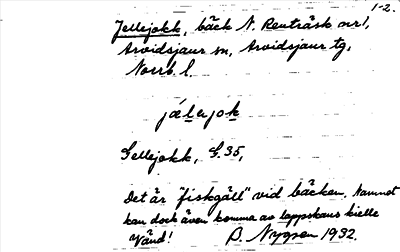 1-2.
Jellejokk, bäck N. Renträsk nr 1,
Arvidsjaur sn, Arvidsjaur tg,
Norrb. l.
jálejok
Gellejokk, G.35,
Det är "fiskgäll" vid bäcken. Namnet
kan dock även komma av lappskans kielle
Vänd! B. Nygren 1932.